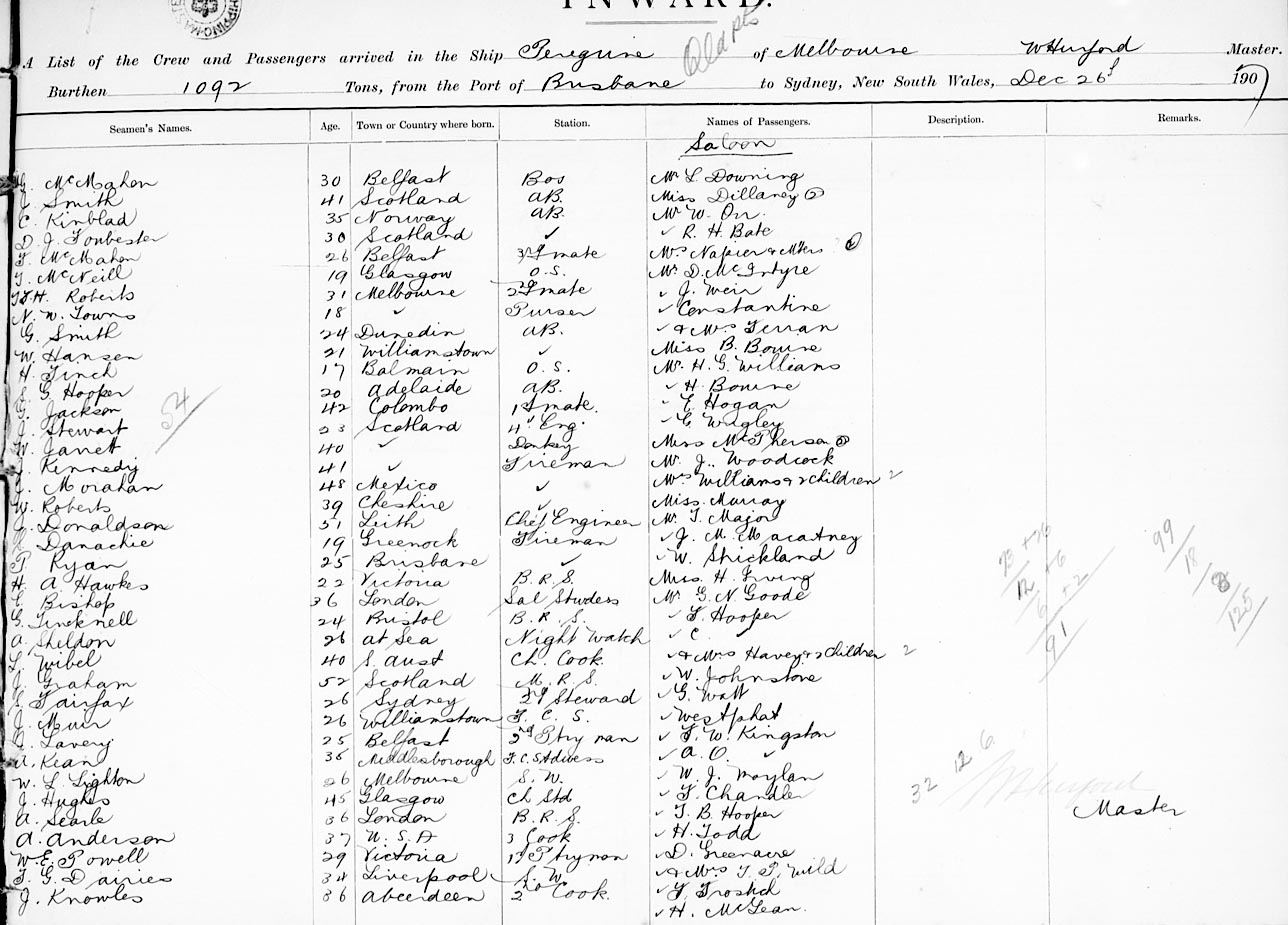 INWARD.
A List of the Crew and Passengers arrived in the Ship Peregrine of Melbourne W Hurford Master.
Burthen 1092 Tons, from the Port of Brisbane to Sydney, New South Wales, Dec 26 1907
Seamen's Names. Age. Town or Country where born. Station. Names of Passengers. Description. Remarks.
Saloon
G. McMahon 30 Belfast Bos Mr L. Downing
J. Smith 41 Scotland AB. Miss Dillaney
C. Kinblad 35 Norway AB. Mr W. Orr.
D. J. Foubester 30 Scotland ✓ ✓ R. H. Bate
F. McMahon 26 Belfast 3rd mate Mrs Napier &
T. McNeill 19 Glasgow O.S. Mr D. McIntyre
H. Roberts 31 Melbourne 2nd mate ✓ J. Weir
N. W. Towns 18 ✓ Purser ✓ Constantine
G. Smith 24 Dunedin AB. ✓ & Mrs Ferran
W. Hansen 21 Williamstown ✓ Miss B. Bourne
H. Finch 17 Balmain O.S. Mr. H. G. Williams
G. Hooper 20 Adelaide AB. ✓ H. Bourne
G. Jackson 42 Colombo 1st mate. ✓ E. Hogan
J. Stewart 23 Scotland 4th Eng. ✓ C. Wrigley
W. Jarrett 40 ✓ Donkey Miss McPherson
J. Kennedy 41 ✓ Fireman Mr. J. Woodcock
J. Morahan 48 Mexico ✓ Mrs Williams & 2 children 2
W. Roberts 39 Cheshire ✓ Miss Murray
J. Donaldson 51 Leith Chief Engineer Mr. T. Major
Danachie 19 Greenock Fireman ✓ J. M. Macartney
P. Ryan 25 Brisbane ✓ ✓ W. Strickland
H. A Hawkes 22 Victoria B.R.S. Miss H. Irving
Bishop 36 London Sal Studess Mr G. N Goode
G. Tincknell 24 Bristol B.R.S. ✓ F. Hooper
A. Sheldon 26 at Sea Night Watch ✓ C. ✓
L. Wibel 40 S. Aust Ch. Cook ✓ & Mrs Havey & 2 children 2
J. Graham 52 Scotland M.R.S. ✓ W. Johnstone
S. Fairfax 26 Sydney 2nd Steward ✓ G. Watt
J. Muir 26 Williamstown F.C.S. ✓ Westphal
Lavery 25 Belfast 2nd Ptryman ✓ F. W. Kingston
A. Kean 35 Middlesborough F.C. Stdwess ✓ A. O. ✓
W. L. Lighton 26 Melbourne S.W. ✓ W. J. Moylan
J. Hughes 45 Glasgow Ch Std ✓ F. Chandler
A. Searle 36 London B.R.S. ✓ T. B. Hooper
A. Anderson 37 U.S.A 3 Cook ✓ H. Todd
W. E. Powell 29 Victoria 1st Ptryman ✓ D. Greenacre
F. G. Dairies 34 Liverpool S.W ✓ & Mrs T. P. Wild
J. Knowles 36 Aberdeen 2nd Cook. ✓ F. Frostd
✓ H. McLean.
54
91
99
18
8
125
32 12 6
W Hurford
Master